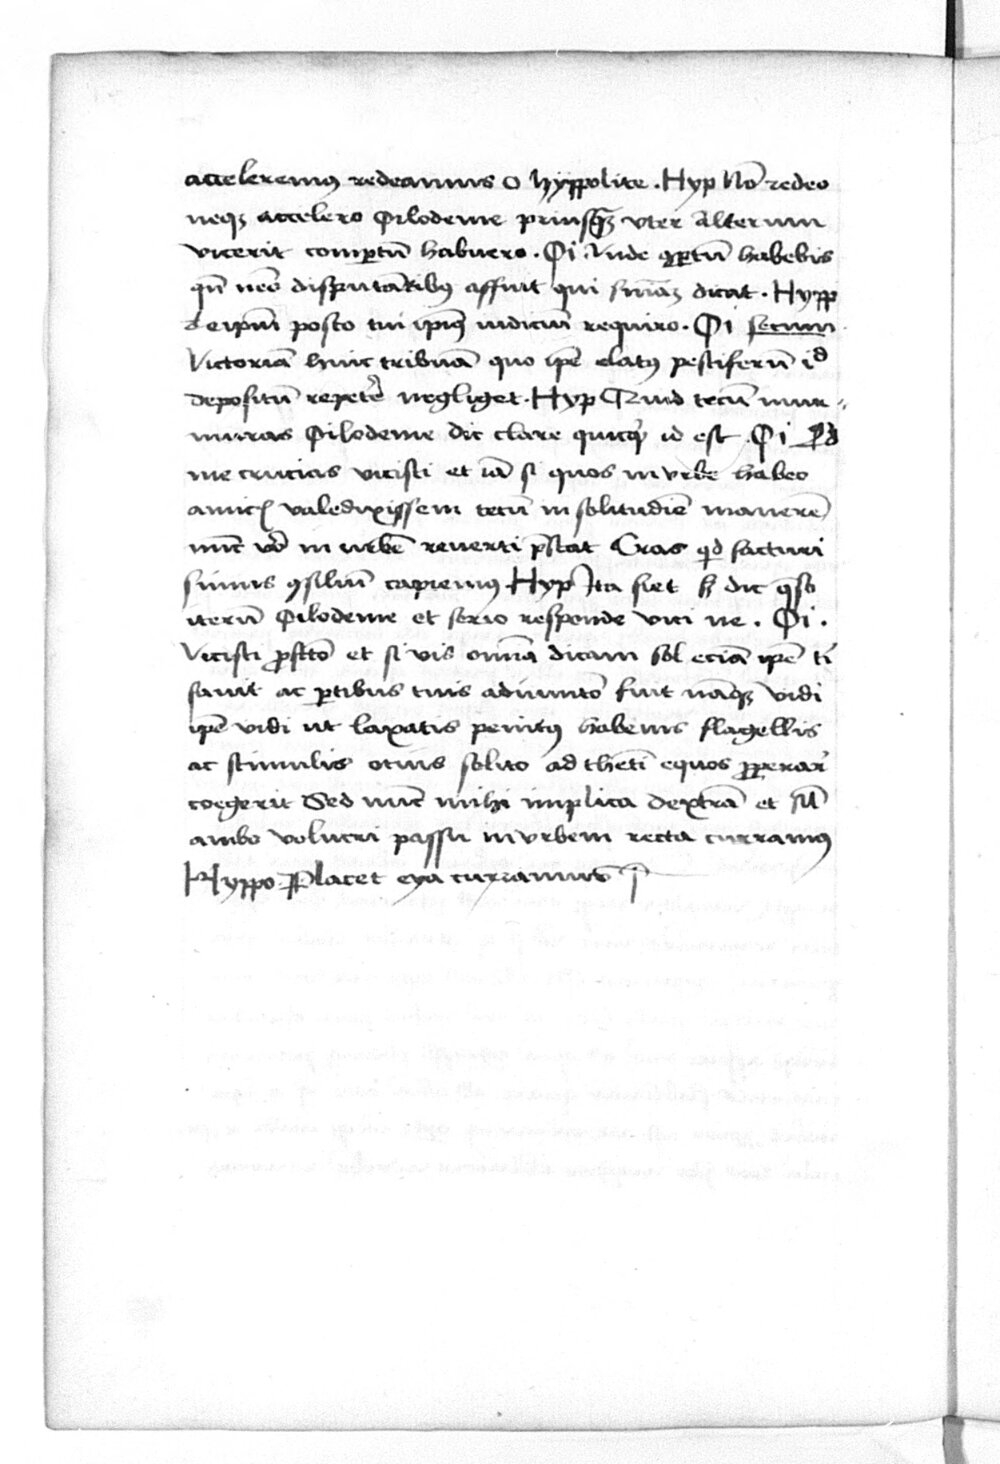 acceleremꝰ redeamus o hyppolite . Hyp Nō redeo
neqꝫ accelero Philodeme priusqꝫ vter alterum
vicerit compertū habuero . Phi . Unde ꝯpertū habebis
qn̄ nēo disputātibꝰ affuit qui sniāꝫ dicat . Hypp
de ipm̄ posco tui ipiꝰ iudiciū requiro . Phi secum
Victoriā huic tribuā quo ip̄e elatꝰ pestiferū id
depositū repetē negliget . Hyp Quid tecū mur
muras Philodeme dic clare quicqͥd id est . Phi Qd
me crucias vicisti et iā si quos in vrbe habeo
amicꝭ valedixissem tecū in solitudīe manerē
nūc vō in urbē reverti p̄stat Cras qid facturi
simus ꝯsiliū capiemꝰ Hyp Ita fiet sꝫ dic q̄so
iterū Philodeme et serio responde vici ne . Phi .
Vicisti ꝓfcto et si vis omīa dicam sol eciā ip̄e tͥ
favit ac ꝑtibus tuis adiumēto fuit nāqꝫ vidi
ip̄e vidi ut laxatis penitꝰ habenis flagellis
ac stimulis otius solito ad thetī equos ꝓperar̄
coegerit Sed nūc mihi implica dextrā et sīl
ambo volucri passu in vrbem recta curramꝰ
Hyppo Placet eya curramus